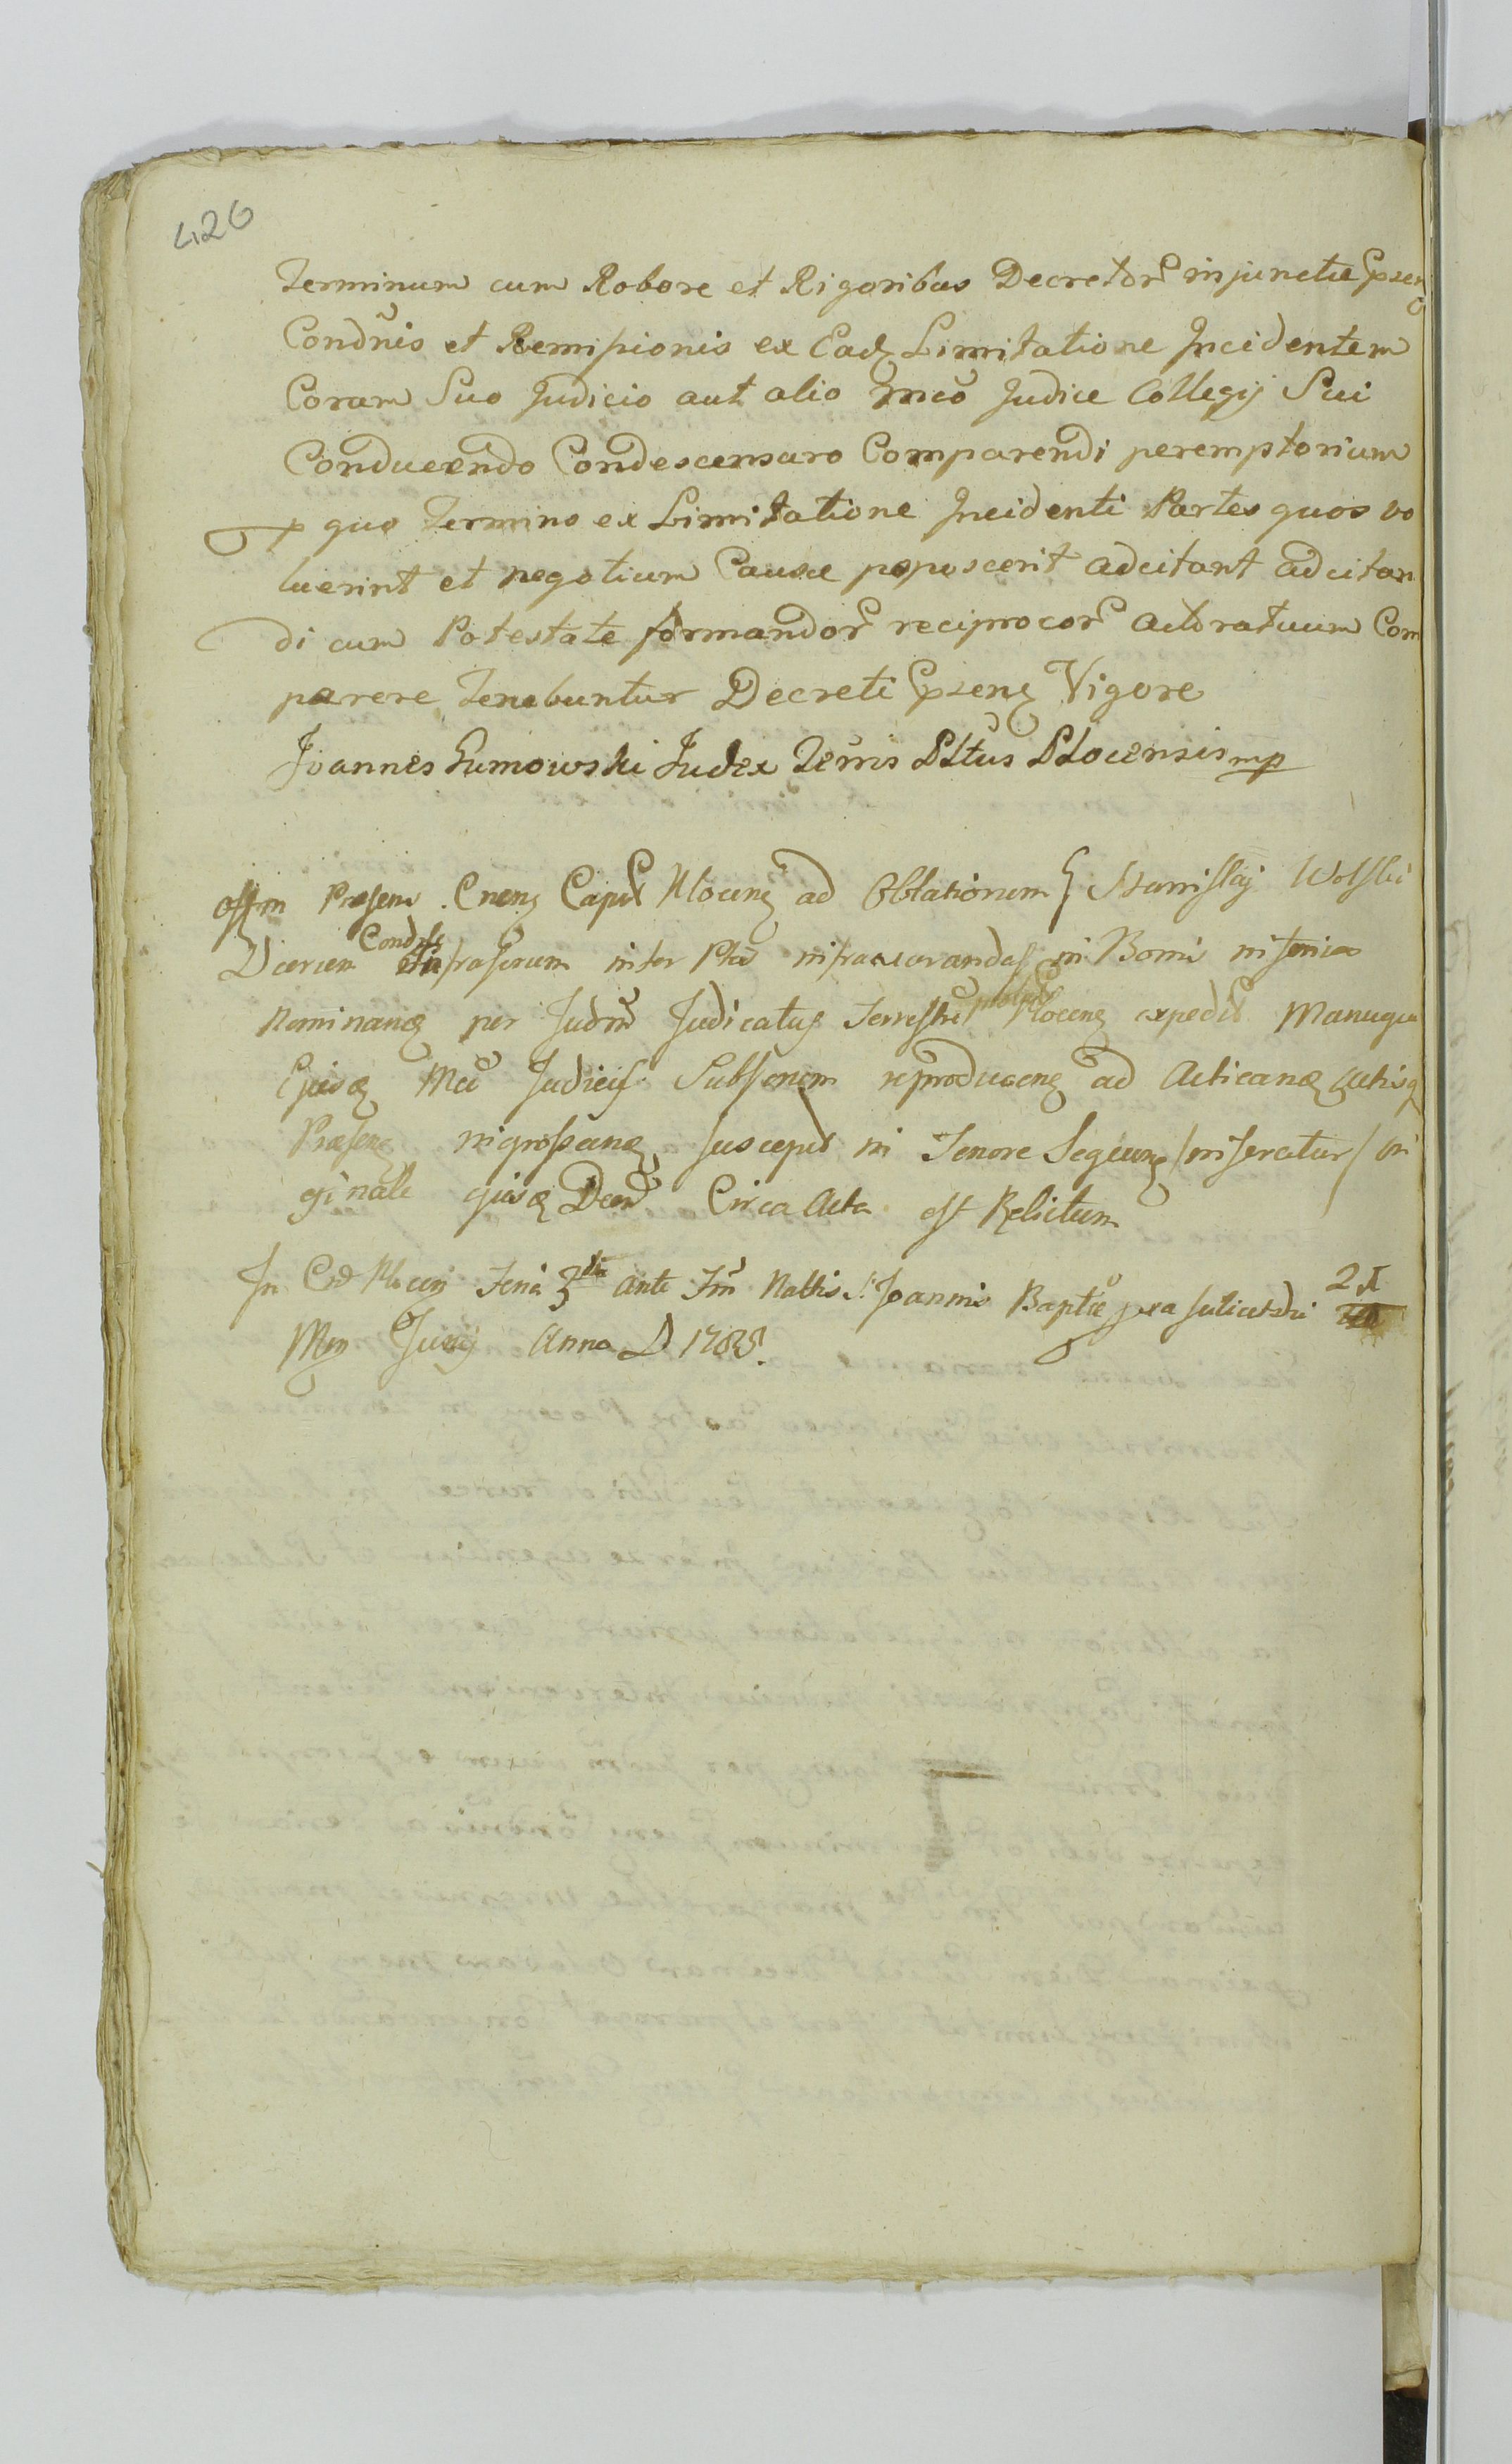 426
Terminum cum Robore et Rigoribus Decretor injunctæ Pzen
Condnis et Remissionis ex Eadȝ Limitatione Incidentem
Coram Suo Judicio aut alio Judice Collegij Sui
Conducendo Condescensuro Comparendi peremptorium
quo Termino ex Limitatione Incidenti Partes quos vo
luerint et negotium Causæ poposcerit adcitant adcitan
di cum Potestate formandor reciprocor actoratuum Com
parere tenebuntur Decreti Pzenȝ Vigore
Joannes Gumowski Judex Terris Pltus Plocensis mp
Offm Præsens Capit Plocenȝ ad Oblationem Stanislaj Wolski
Condis
infrascrum inter Ptes in Bonis
Nominanȝ per Judm Judicatus Terrestre Plocenȝ expedit Manuque
Ejusȝ Judicis Subscriptionem reproducenȝ ad Acticanȝ Actisq
Præsenȝ ingrossanȝ suscepit in Tenore Sequenȝ /inseratur/ ori
ginale ejusȝ Decti Circa Acta est Relictum
In Cdia Plocen Feria 3tia ante Fm Natlis S. Joannis Baptæ
Men Junij Anno D 1788.